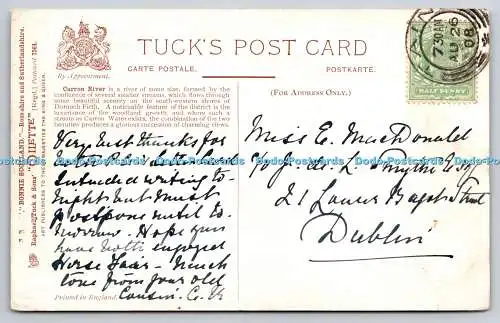 TUCK'S POST CARD
CARTE POSTALE.
POSTKARTE.
(FOR ADDRESS ONLY.)
By Appointment.
Carron River is a river of some size, formed by the
confluence of several smaller streams, which flows through
some beautiful scenery on the south-western shores of
Dornoch Firth. A noticeable feature of the district is the
luxuriance of the woodland growth, and where such a
stream as Carron Water exists, the combination of the two
beauties produces a glorious exhibition of charming effects.
"BONNIE SCOTLAND."—Ross-shire and Sutherlandshire.
Raphael Tuck & Sons' "OILETTE" [Regd.] Postcard
ART PUBLISHERS TO THEIR MAJESTIES THE KING & QUEEN.
Very best thanks for
intended writing to-
night but must
postpone until to-
morrow. Hope you
have
engaged
Horse Fair — Much
love from your old
Cousin C.
Printed in England.
7.30AM
AU 26
08
HALF PENNY
Miss E. MacDonald
21 Lower Baggot Street
Dublin
7
Dodo-Postcards